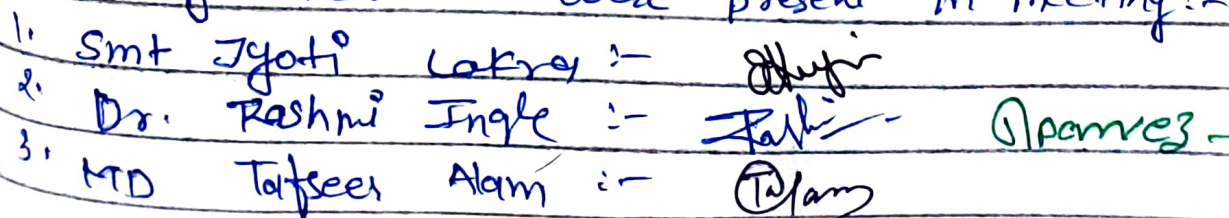 present in meeting :-
1. Smt Jyoti Lakra :-
2. Dr. Rashmi Ingle :- Rashmi
3. MD Tafseer Alam :- TAlam